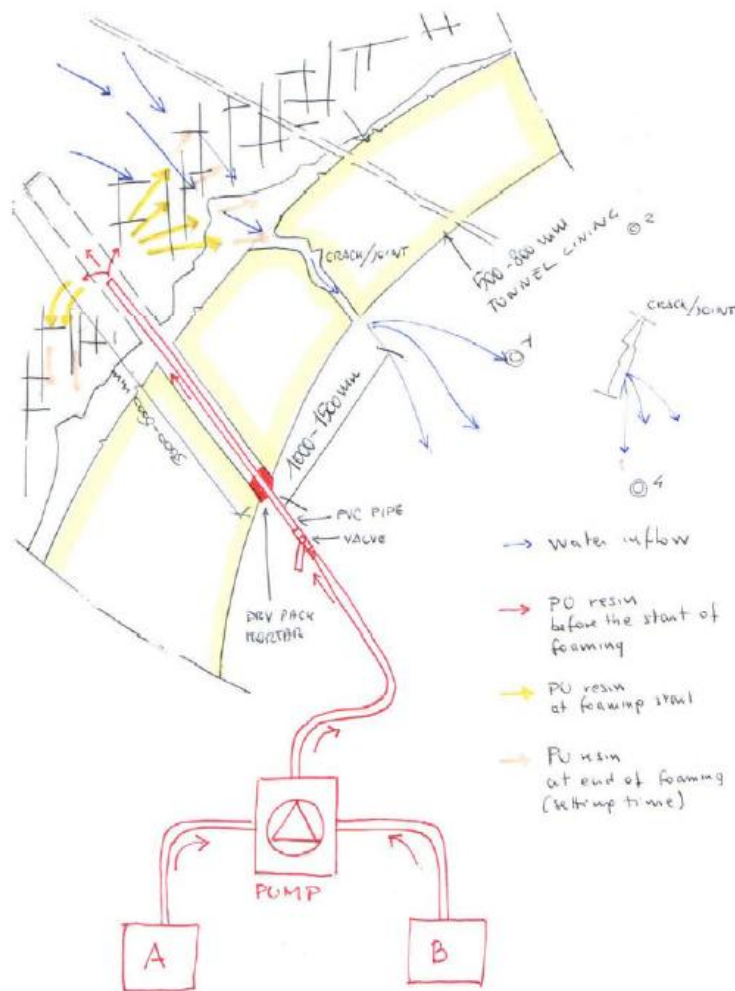 CRACK/JOINT
500-800 mm
TUNNEL LINING
2
CRACK/JOINT
1
4
3000-6000 mm
1000-1500 mm
PVC PIPE
VALVE
DRY PACK
MORTAR
water inflow
PU resin
before the start of
foaming
PU resin
at foaming start
PU resin
at end of foaming
(setting time)
PUMP
A
B